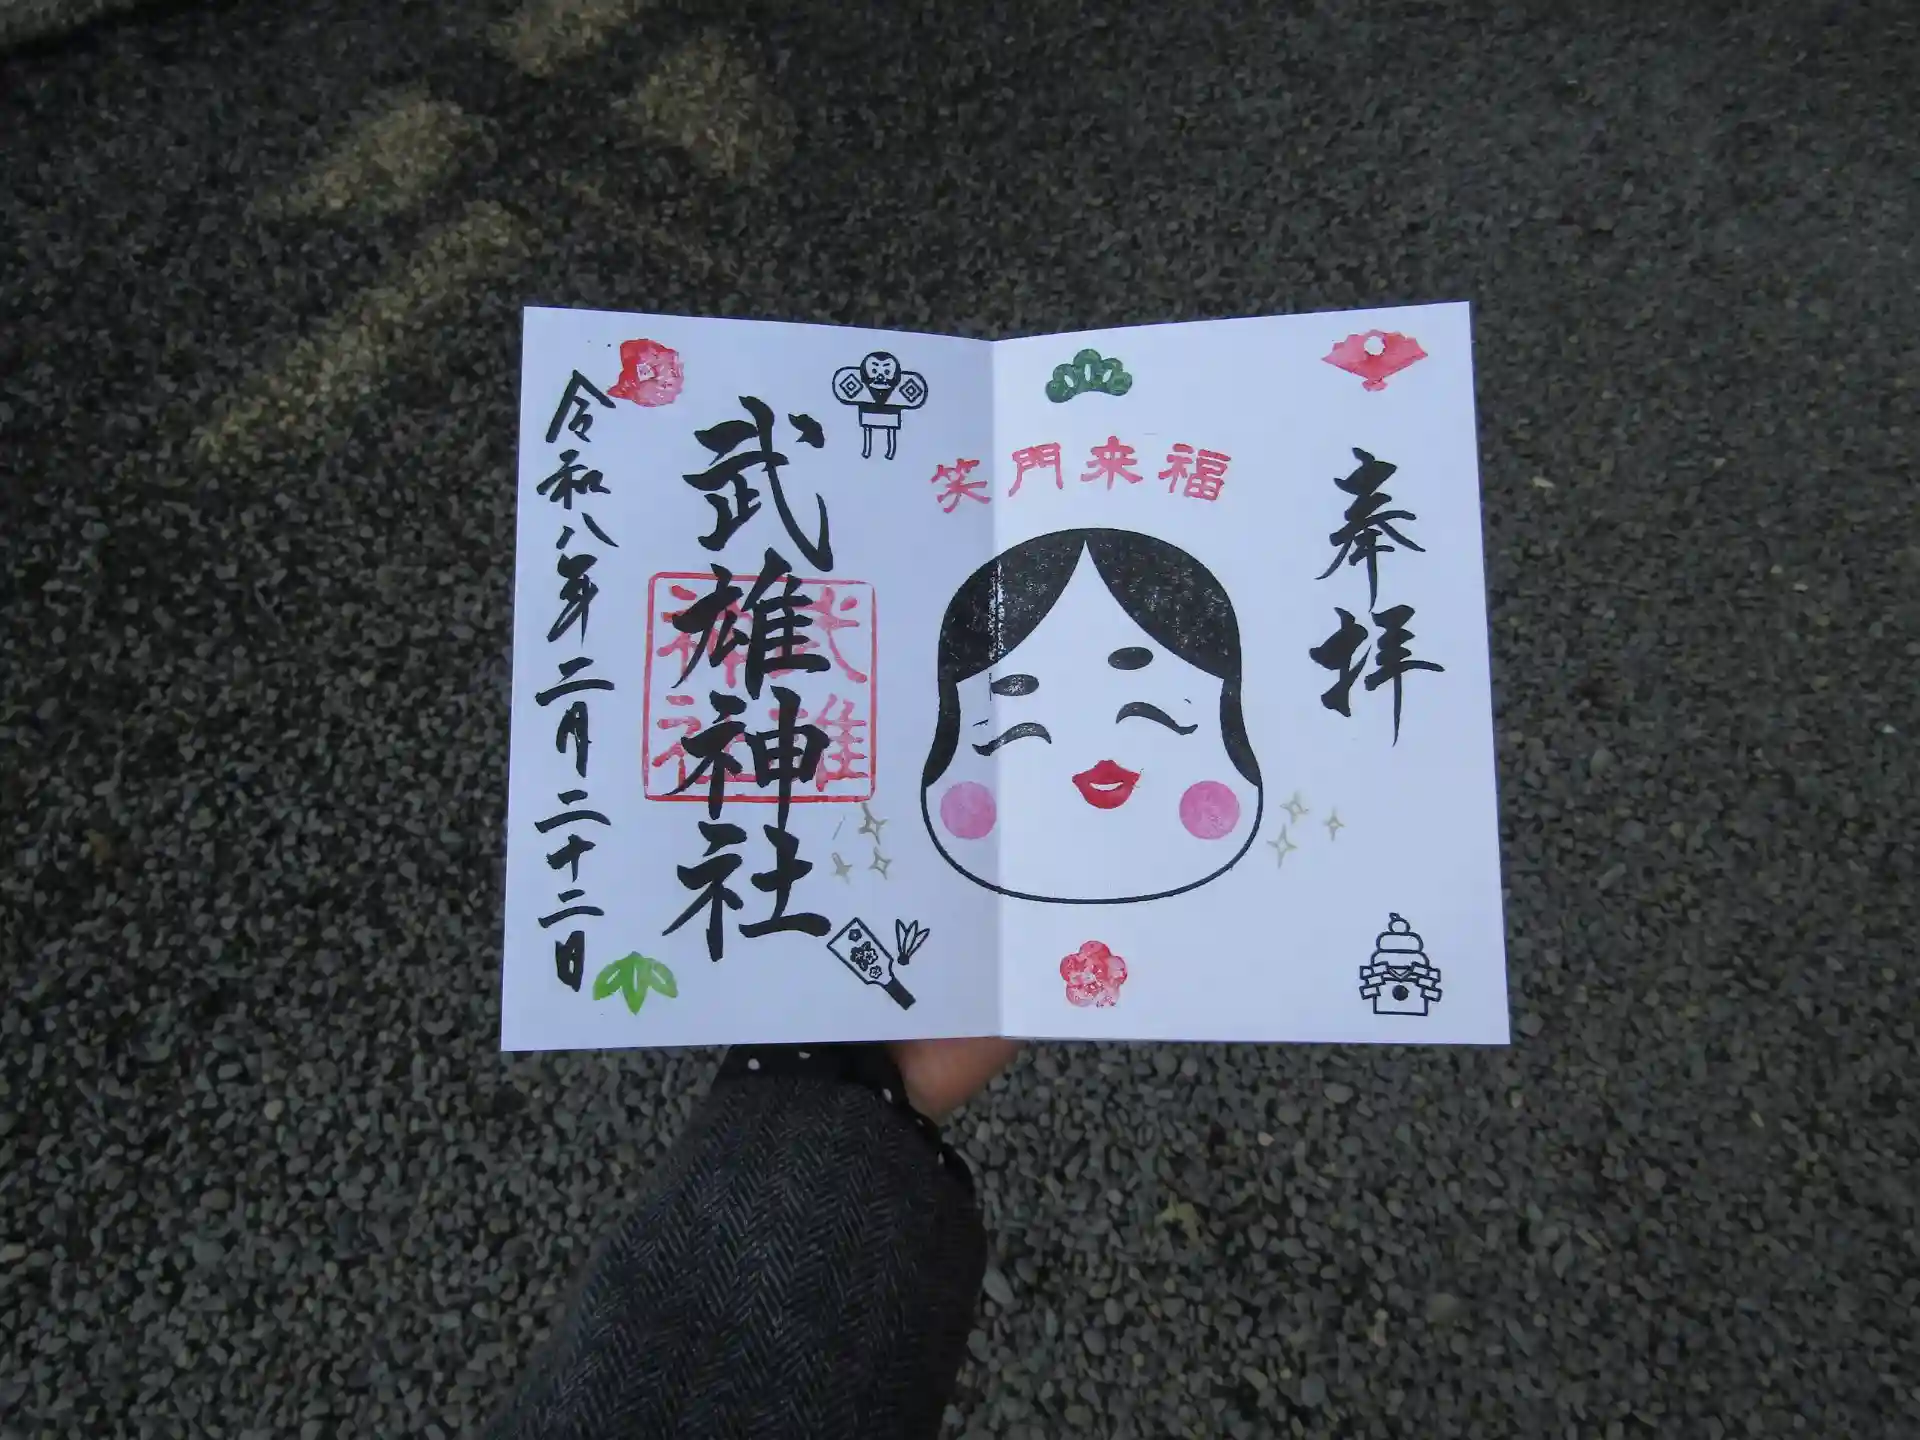 奉拝
笑門来福
武雄神社
武雄神社
令和八年二月二十二日